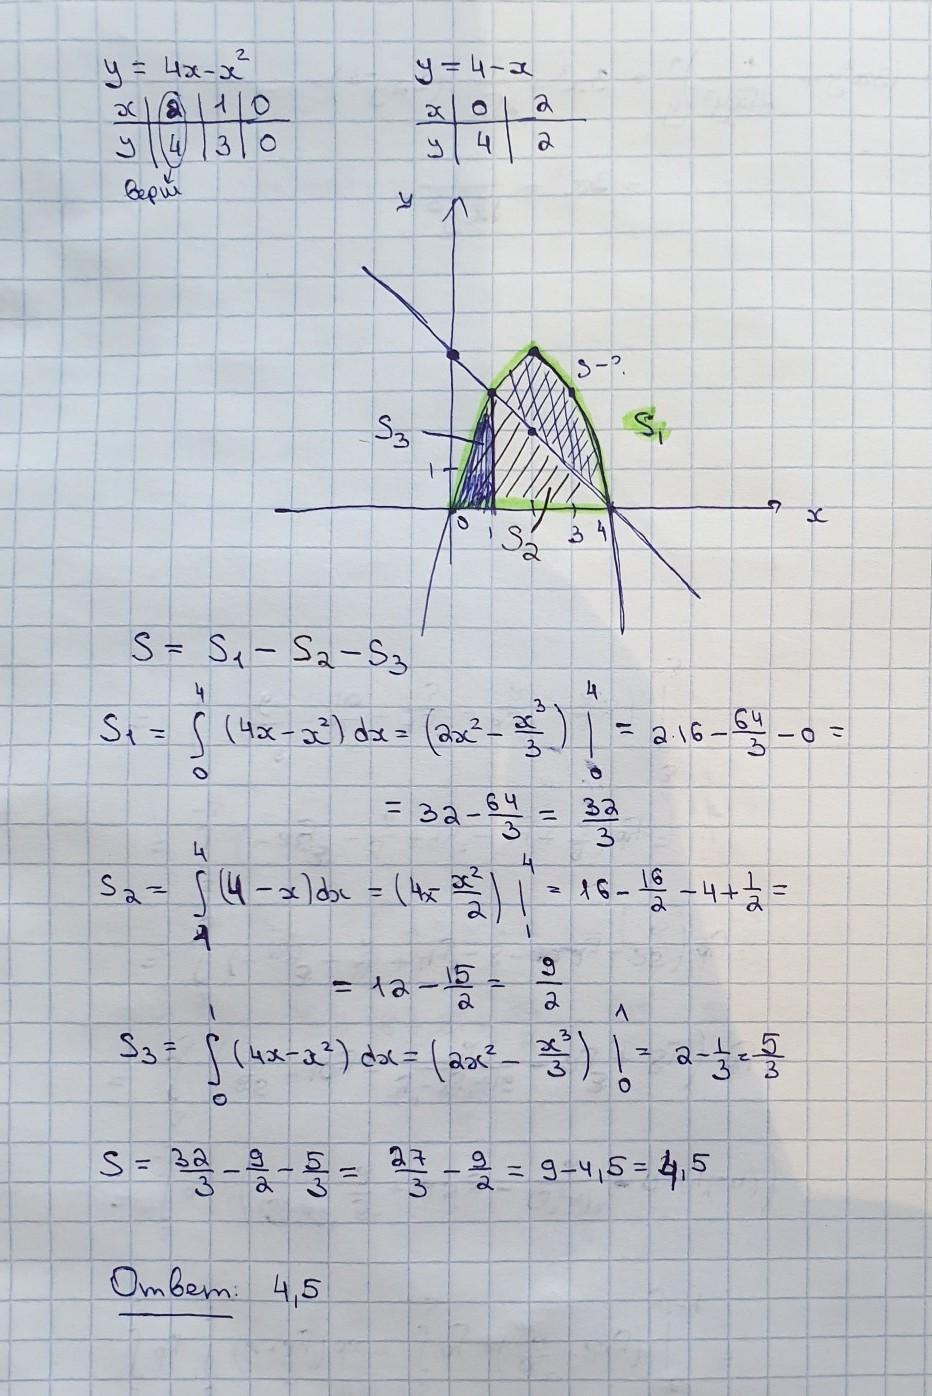 y = 4x-x² y = 4-x
x | 2 | 1 | 0 x | 0 | 2
y | 4 | 3 | 0 y | 4 | 2
верш
y
S-?
S₁
S₃
1
0 1 3 4 x
S₂
S = S₁ - S₂ - S₃
S₁ = ∫₀⁴ (4x-x²) dx = (2x² - x³/3) |₀⁴ = 2·16 - 64/3 - 0 =
= 32 - 64/3 = 32/3
S₂ = ∫₁⁴ (4-x)dx = (4x - x²/2) |₁⁴ = 16 - 16/2 - 4 + 1/2 =
= 12 - 15/2 = 9/2
S₃ = ∫₀¹ (4x-x²) dx = (2x² - x³/3) |₀¹ = 2 - 1/3 = 5/3
S = 32/3 - 9/2 - 5/3 = 27/3 - 9/2 = 9 - 4,5 = 4,5
Ответ: 4,5